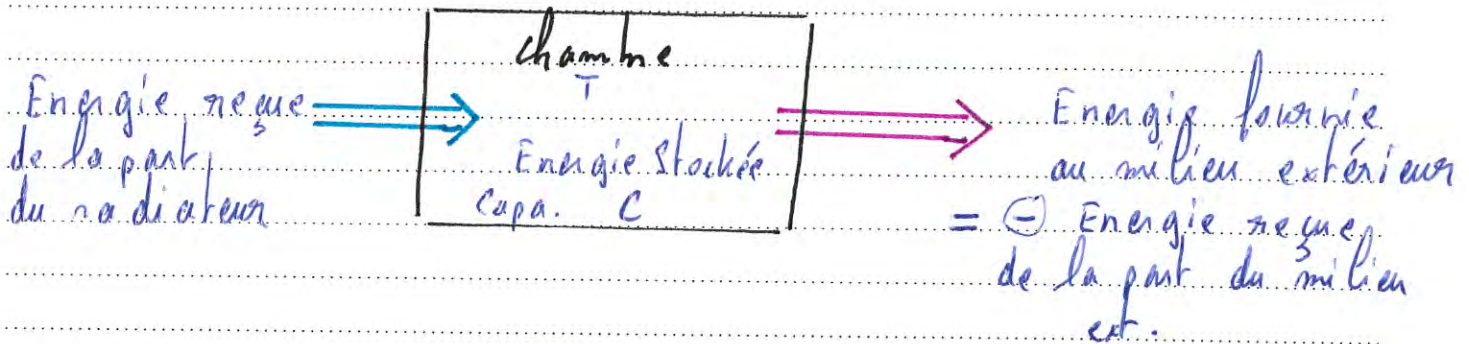 Energie reçue
de la part
du radiateur
chambre
T
Energie Stockée
Capa. C
Energie fournie
au milieu extérieur
= ⊖ Energie reçue
de la part du milieu
ext.